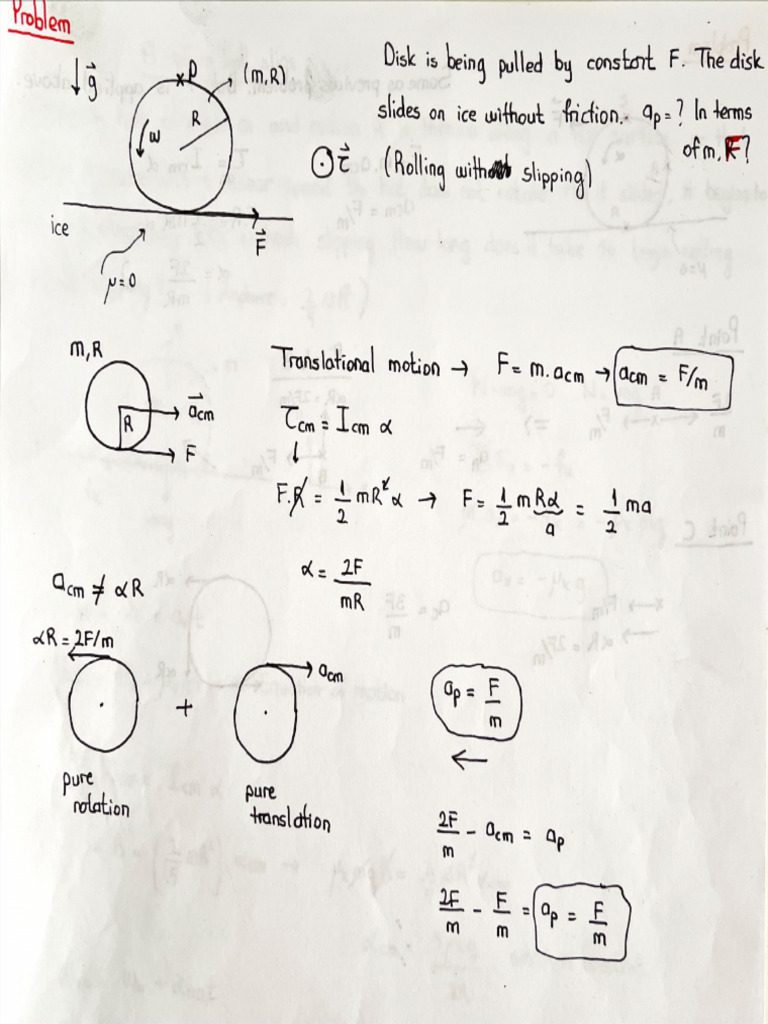 Problem
g
P
(m,R)
R
ω
ice
F
μ=0
Disk is being pulled by constant F. The disk
slides on ice without friction. ap=? In terms
of m, F?
τ (Rolling with slipping)
m,R
R
acm
F
Translational motion → F = m.acm → acm = F/m
τcm = Icm α
↓
F.R = 1/2 mR² α → F = 1/2 m Rα = 1/2 ma
a
α = 2F/mR
acm ≠ αR
αR = 2F/m
+
acm
pure
rotation
pure
translation
ap = F/m
←
2F/m - acm = ap
2F/m - F/m = ap = F/m